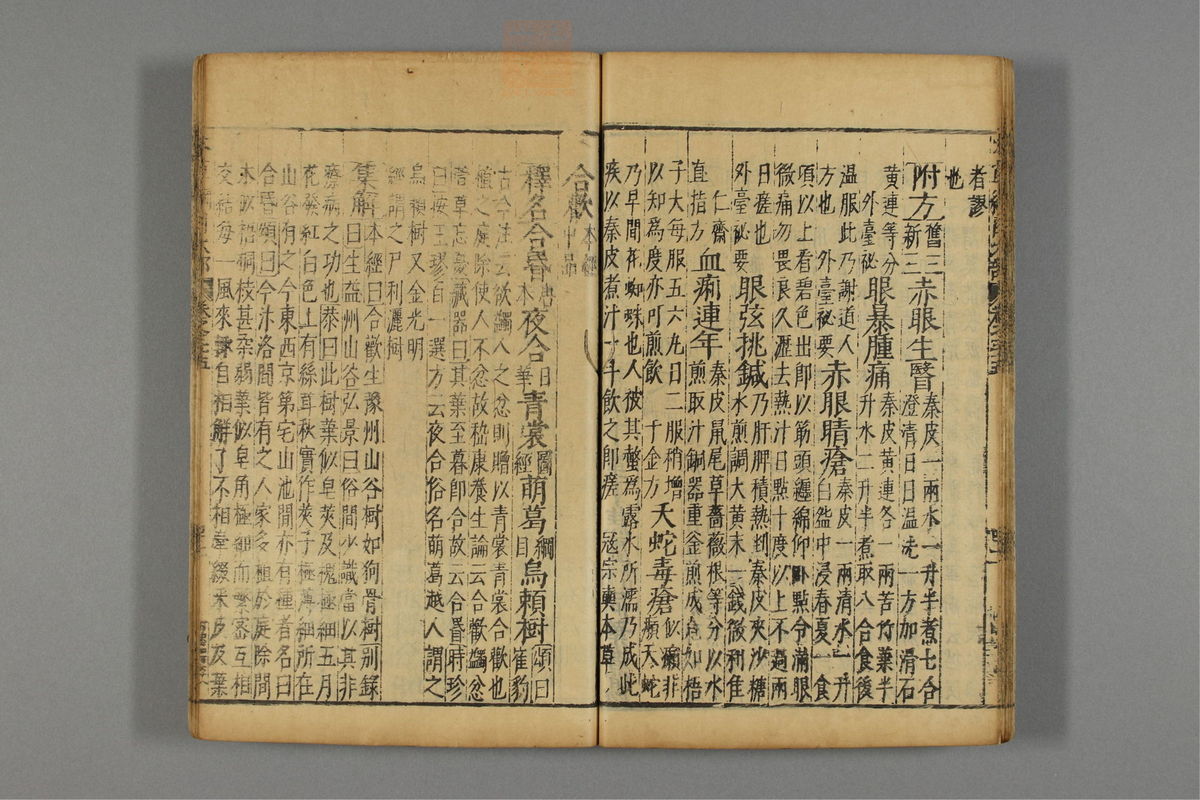 者謬
也
附方舊三新三赤眼生瞖秦皮一兩水一升半煮七合澄清日日温洗一方加滑石
黄連等分外臺祕眼暴腫痛秦皮黄連各一兩苦竹葉半升水二升半煮取八合食後
温服此乃謝道人方也外臺祕要赤眼睛瘡秦皮一兩清水一升白盌中浸春夏一食
頃以上看碧色出即以筯頭纏綿仰卧點令滿眼微痛勿畏良久瀝去熱汁日點十度以上不過兩
日瘥也外臺祕要眼弦挑鍼乃肝脾積熱剉秦皮夾沙糖水煎調大黄末一錢微利佳
仁齋直指方血痢連年秦皮鼠尾草薔薇根等分以水煎取汁銅器重釡煎成丸如梧
子大每服五六丸日二服稍增以知爲度亦可煎飲千金方天蛇毒瘡似癩非癩天蛇
乃草間花蜘蛛也人彼其螫爲露水所濡乃成此疾以秦皮煮汁一斗飲之即瘥寇宗奭本草
合歡本經中品
釋名合昏唐本夜合日華青裳圖經萌葛綱目烏賴樹頌曰崔豹
古今注云欲蠲人之忿則贈以青裳青裳合歡也
植之庭除使人不忿故嵇康養生論云合歡蠲忿
萱草忘憂藏器曰其葉至暮即合故云合昏時珍
曰按王璆百一選方云夜合俗名萌葛越人謂之
烏賴樹又金光明經謂之尸利灑樹
集解本經曰合歡生豫州山谷樹如狗骨樹别録曰生益州山谷弘景曰俗間少識當以其非
療病之功也恭曰此樹葉似皂莢及槐極細五月
花發紅白色上有絲茸秋實作莢子極薄細所在
山谷有之今東西京第宅山池間亦有種者名曰
合昏頌曰今汴洛間皆有之人家多植於庭除間
木似梧桐枝甚柔弱葉似皂角極細而繁密互相
交結每一風來輒自相解了不相牽綴采皮及葉